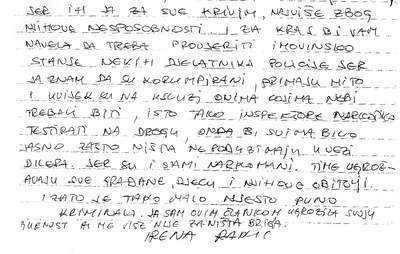 JER IH JA ZA SVE KRIVIM, NAJVIŠE ZBOG
NJIHOVE NESPOSOBNOSTI. I ZA KRAJ BI VAM
NAVELA DA TREBA PROVJERITI IMOVINSKO
STANJE NEKIH DJELATNIKA POLICIJE JER
JA ZNAM DA SU KORUMPIRANI, PRIMAJU MITO
I UVIJEK SU NA USLUZI ONIMA KOJIMA NEBI
TREBALI BITI, ISTO TAKO INSPEKTORE NARKOTIKO
TESTIRATI NA DROGU, ONDA BI SVIMA BILO
JASNO ZAŠTO NIŠTA NEPODUZIMAJU U VEZI
DILERA JER SU I SAMI NARKOMANI. TIME UGROŽ-
AVAJU SVE GRAĐANE, DJECU I NJIHOVE OBITELJI.
I ZATO JE TAKO MALO MJESTO PUNO
KRIMINALA. JA SAM OVIM ČLANKOM UGROZILA SVOJU
SIGURNOST ALI ME VIŠE NIJE ZA NIŠTA BRIGA.
IRENA